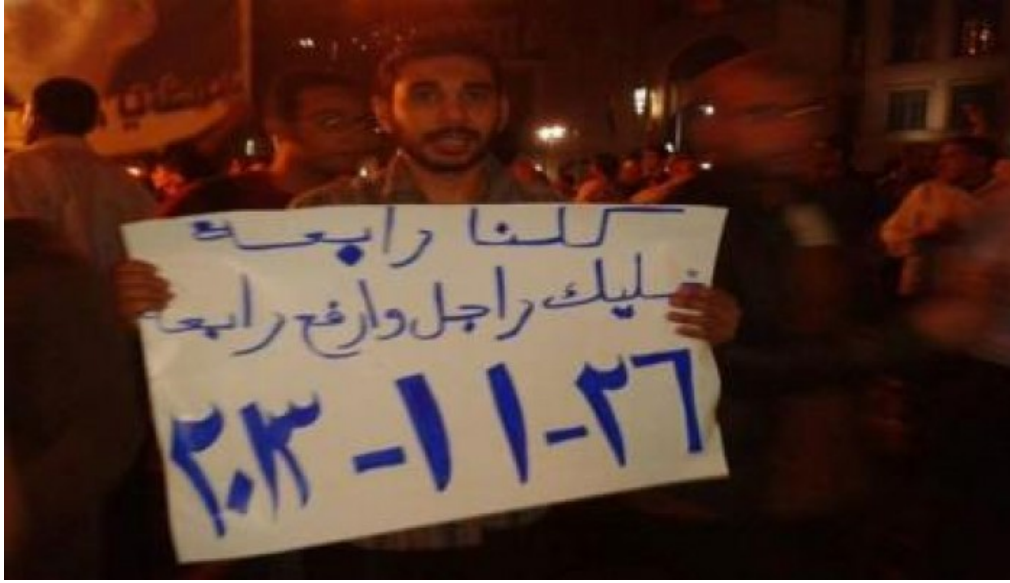 كلنا رابعة
خليك راجل وارفع رابعة
٢٦-١١-٢٠١٣